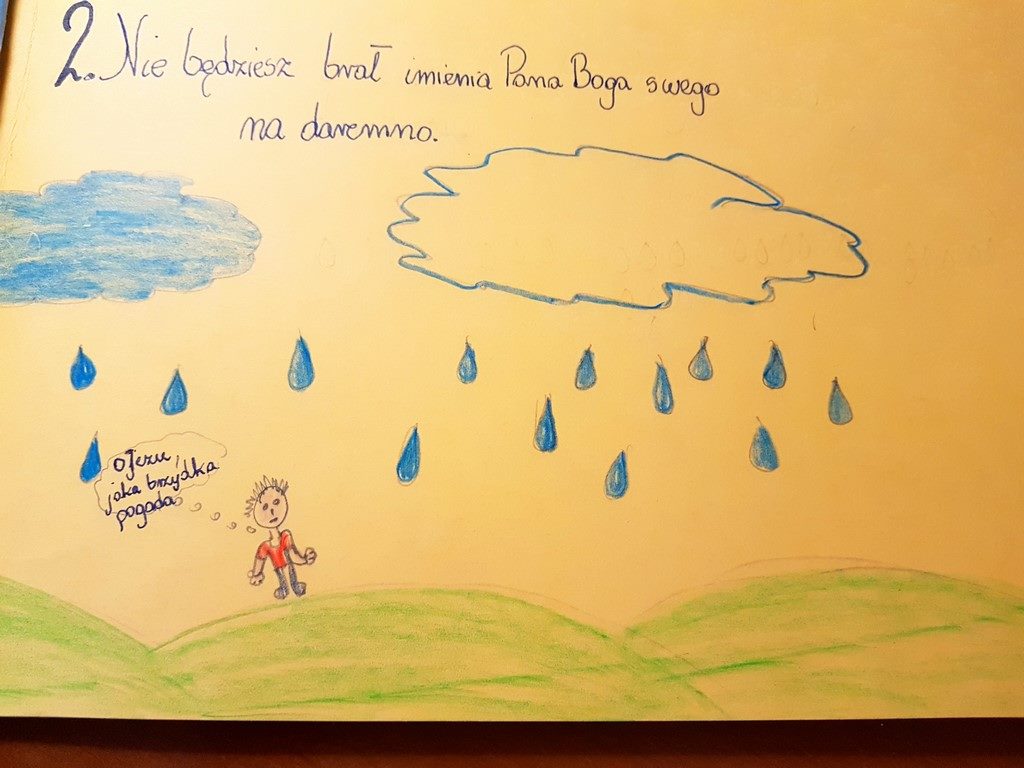 2. Nie będziesz brał imienia Pana Boga swego
na daremno.
O Jezu,
jaka brzydka
pogoda